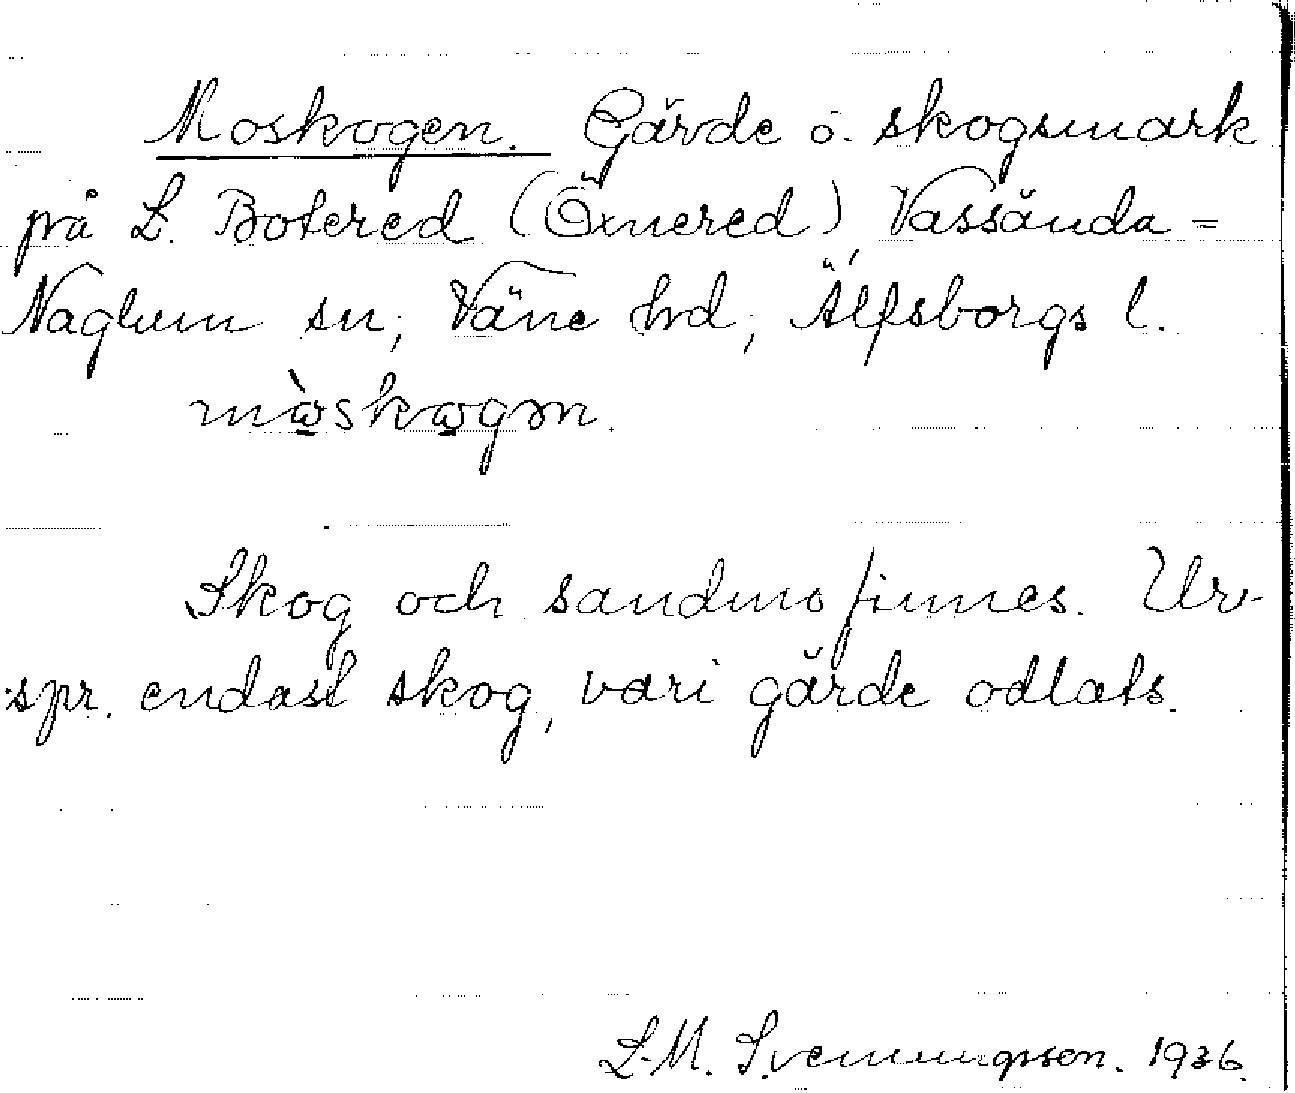 Moskogen. Gärde o. skogsmark
på L. Botered (Öxnered), Vassända=
Naglum sn, Väne hd, Älfsborgs l.
mòskogen.
Skog och sandmo finnes. Ur-
spr. endast skog, vari gärde odlats.
L.M. Svenungsson. 1936.